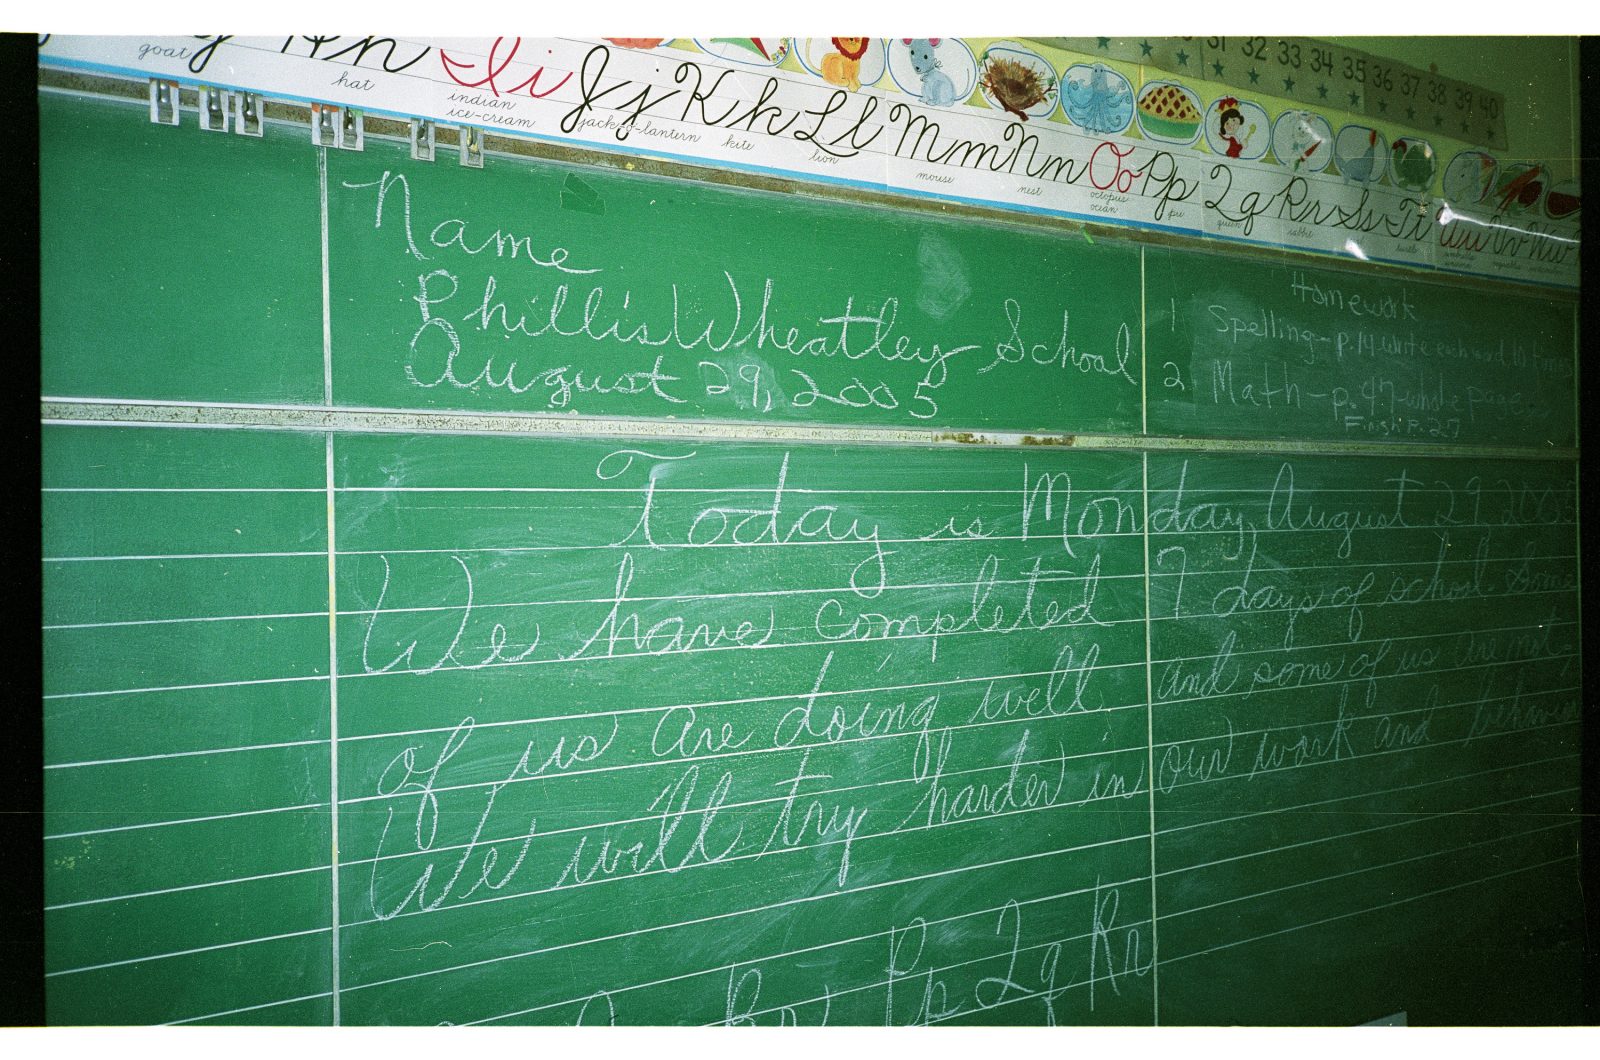 31 32 33 34 35 36 37 38 39 40
Hh Ii Jj Kk Ll Mm Nn Oo Pp Qq Rr Ss Tt Uu Vv Ww
goat hat indian jack-o-lantern kite lion mouse nest octopus pie queen rabbit turtle
ice-cream ocean
Name
Phillis Wheatley School
August 29, 2005
Homework
1 Spelling - p. 14 write each word 10 times
2 Math - p. 47 whole page.
Finish P. 27
Today is Monday, August 29 2005
We have completed 7 days of school. Some
of us are doing well and some of us are not.
We will try harder in our work and behavior
Pp Qq Rr